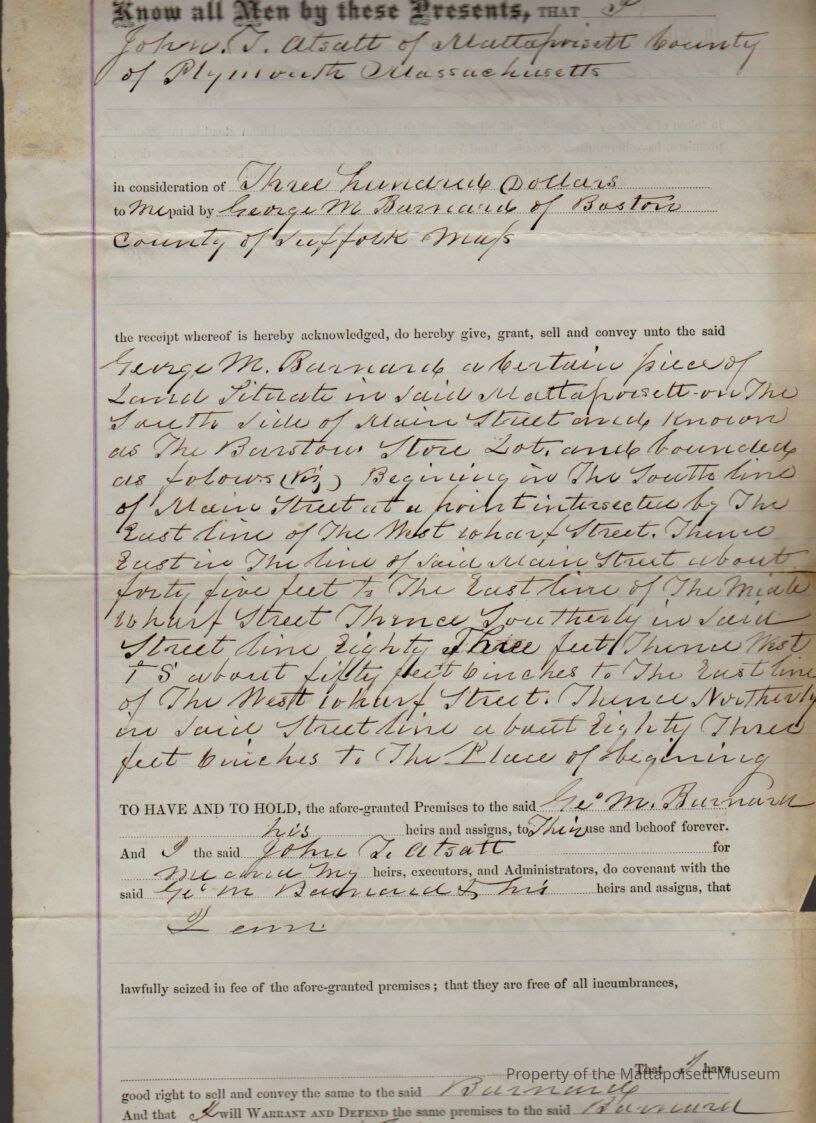 Know all Men by these Presents, THAT I
John. T. Atsatt of Mattapoisett County
of Plymouth Massachusetts
in consideration of Three hundred Dollars
to Me paid by George M Barnard of Boston
County of Suffolk Mass
the receipt whereof is hereby acknowledged, do hereby give, grant, sell and convey unto the said
George M. Barnard a Certain piece of
Land Situate in said Mattapoisett on The
South Side of Main Street and Known
as The Barstow Store Lot, and bounded
as folows (Viz) Begining in The South line
of Main Street at a point intersected by The
East line of The West wharf Street. Thence
East in The line of said Main Street about
forty five feet to The East line of The Midle
wharf Street Thence Southerly in said
Street line Eighty Three feet Thence West
S about fifty feet 6 inches to The East line
of The West wharf Street. Thence Northerly
in said Street line about Eighty Three
feet 6 inches to The Place of begining
TO HAVE AND TO HOLD, the afore-granted Premises to the said Geo M. Barnard
his heirs and assigns, to Their use and behoof forever.
And I the said John T. Atsatt for
me and my heirs, executors, and Administrators, do covenant with the
said Geo M Barnard & his heirs and assigns, that
I am
lawfully seized in fee of the afore-granted premises; that they are free of all incumbrances,
That I have
Property of the Mattapoisett Museum
good right to sell and convey the same to the said Barnard
And that I will WARRANT AND DEFEND the same premises to the said Barnard